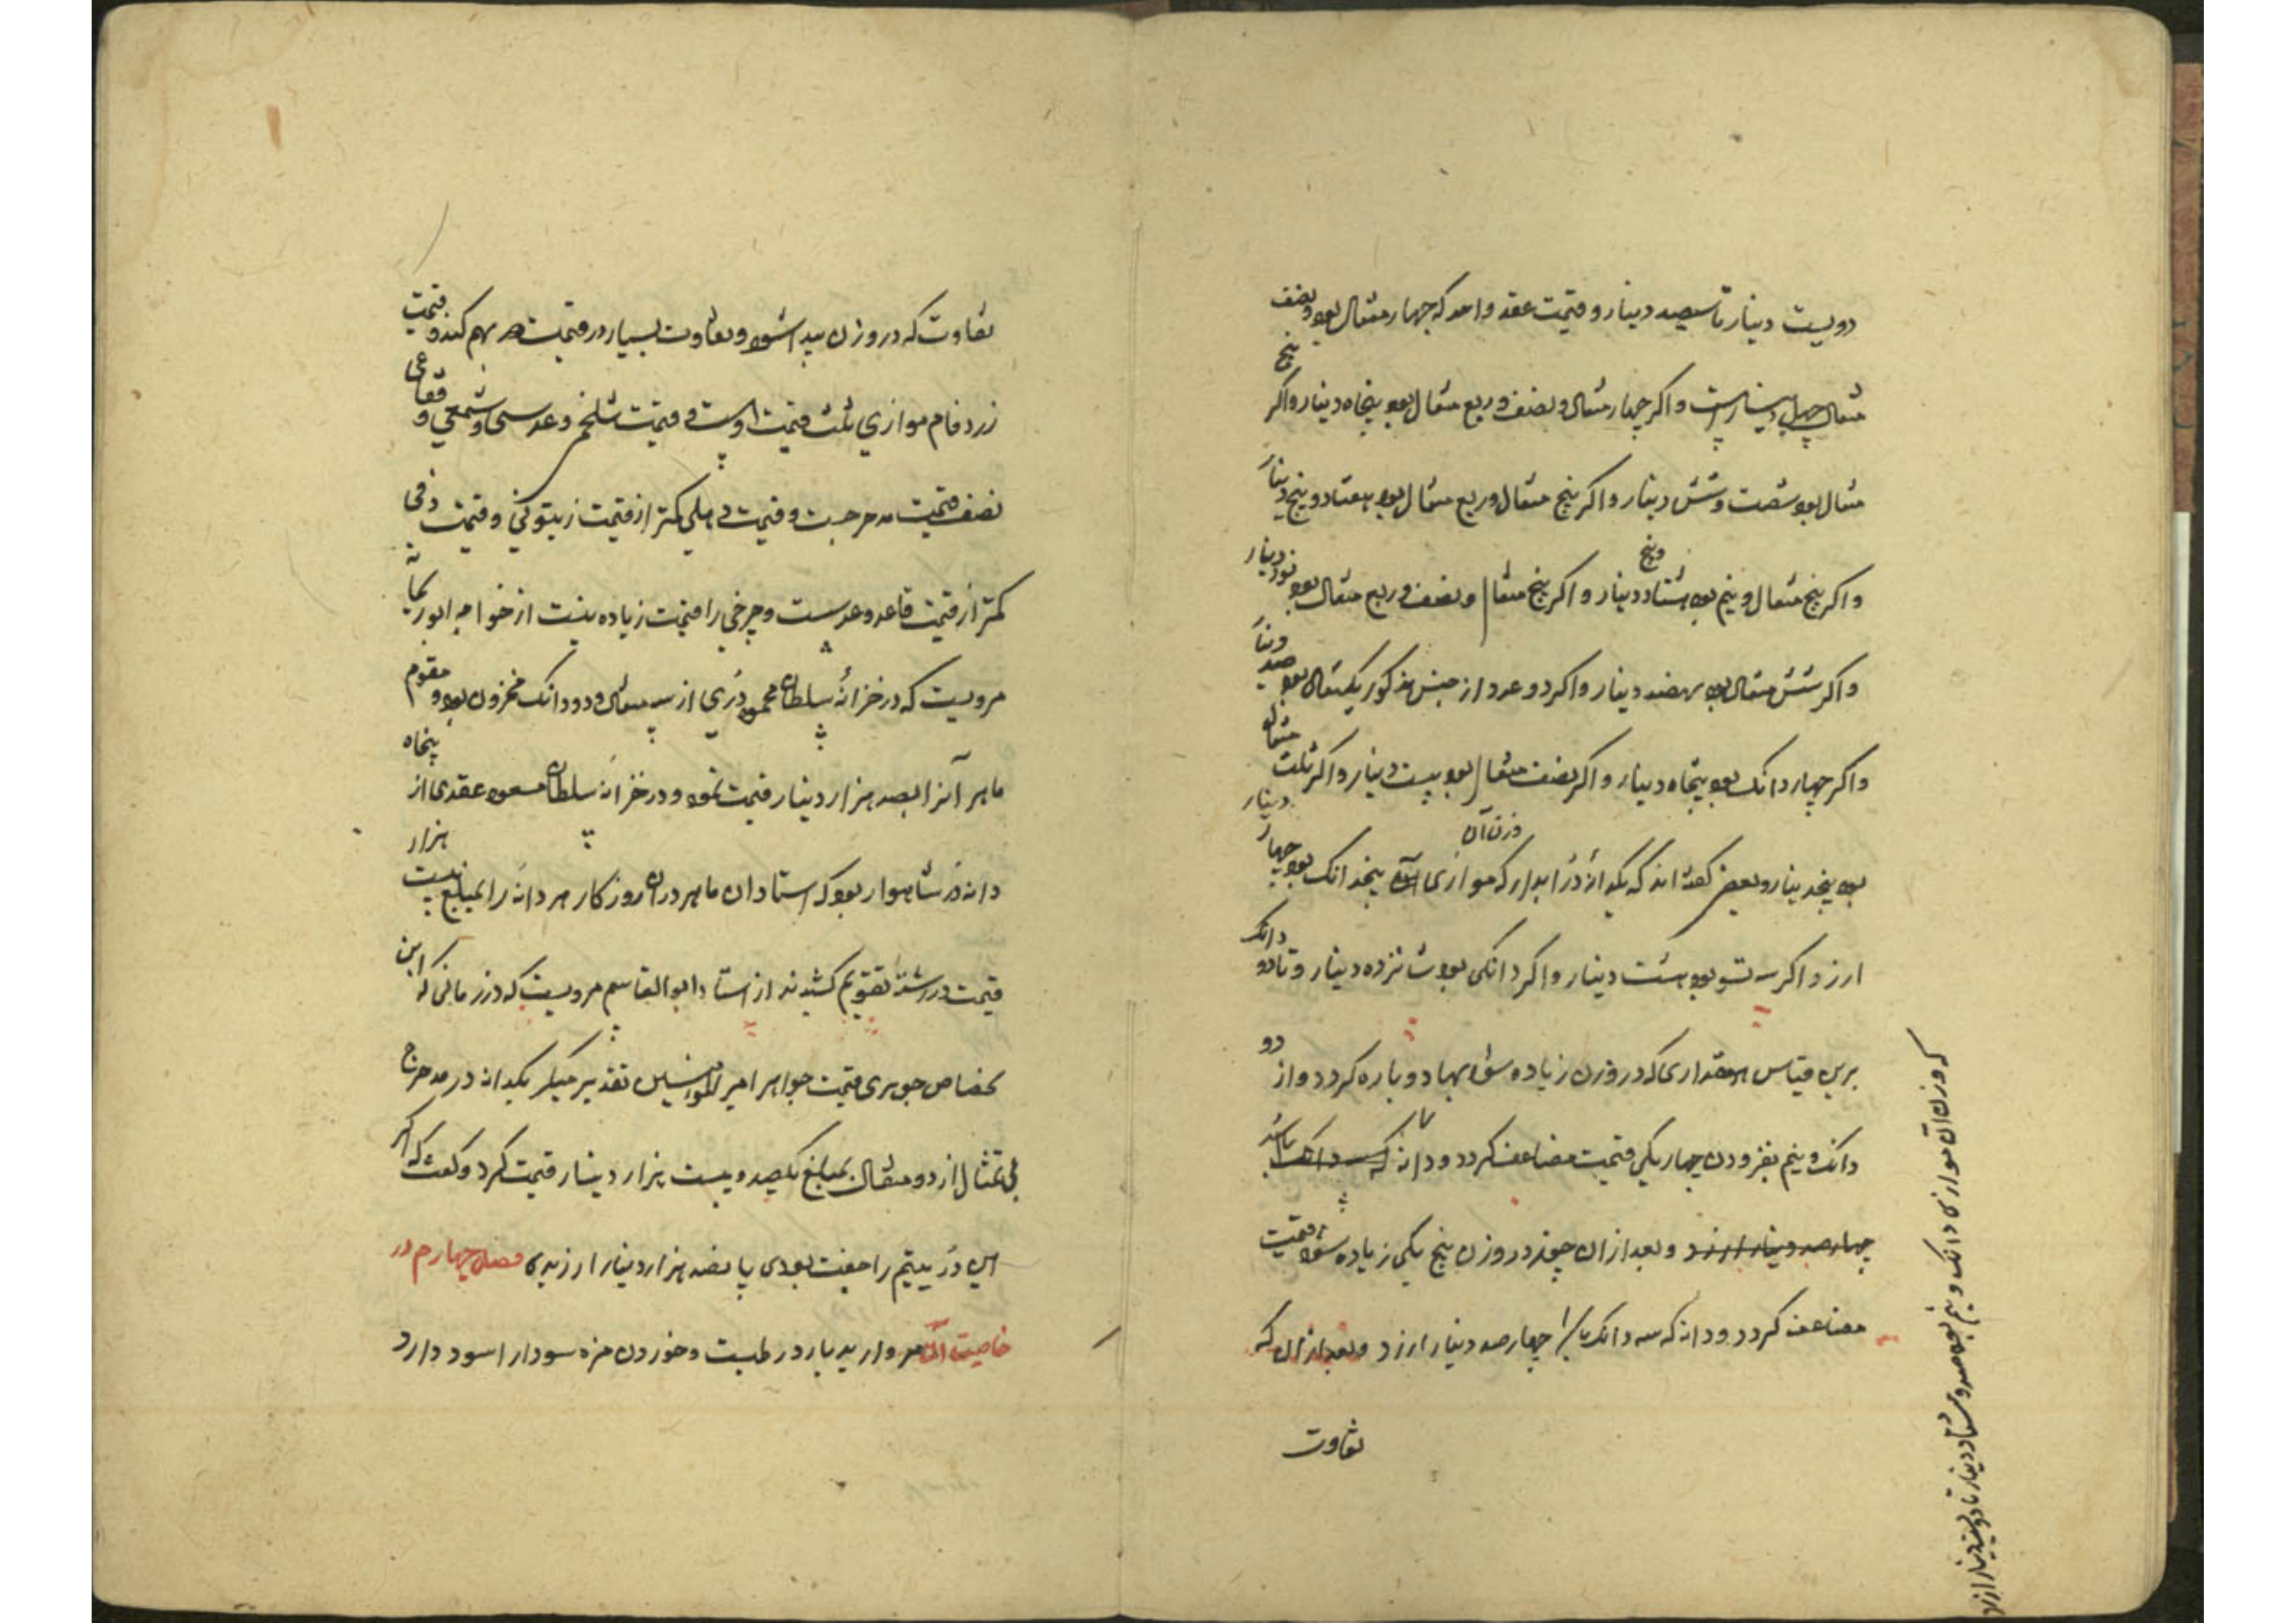 دویست دینار تا سیصد دینار و قیمت عقد واحد که چهار مثقال بود و نصف
مثقال چهل و پنج دینارست و اکر چهار مثقال و نصف و ربع مثقال بود پنجاه دینار و اکر پنج
مثقال بود شصت و شش دینار و اکر پنج مثقال و ربع مثقال بود هفتاد و پنج دینار
و اکر پنج مثقال و نیم بود هشتاد و پنج دینار و اکر پنج مثقال و نصف و ربع مثقال بود نود دینار
و اکر شش مثقال بود دینار و اکر دو عدد از جنس مذکور یکمثقال بود صد دینار
و اکر چهار دانک بود پنجاه دینار و اکر نصف مثقال بود بیست دینار و اکر ثلث مثقال
بود پنجدینار و بعضی کفته‌اند که یکدانه در آبدار که موازی وزن آن پنجدانک بود چهار دینار
ارزد و اکر سه تسو بود هشت دینار و اکر دانکی بود شانزده دینار و تا دو دانک
برین قیاس مقداری که در وزن زیاده شود بها دوباره کردد و از دو
دانک و نیم بفزودن چهار یکی قیمت مضاعف کردد و دانه که سه دانک باشد
چهارصد دینار ارزد و بعد ازان چون در وزن پنج یکی زیاده شود قیمت
مضاعف کردد و دانه که سه دانک باشد چهارصد دینار ارزد و بعد ازان که
تفاوت
که وزن آن موازی دانک و نیم بود صد و هشتاد دینار تا دویست دینار ارزد
تفاوت که در وزن پیدا شود و تفاوت بسیار در قیمت هم بهم کند و قیمت
زرد فام موازی ثلث قیمت اوست و قیمت شلغمی و عدسی و شمعی و فقاعی
نصف قیمت مدحرجست و قیمت کمتر از قیمت زیتونی و قیمت
کمتر از قیمت قاعد و عدسست و چرخی را قیمت زیاده نیست از خواجه ابوریحان
مرویست که در خزانه سلطان محمود دری از سه مثقال و دو دانک مخزون بود و مقوم
ماهر آنرا بصد هزار دینار قیمت نمود و در خزانه سلطان مسعود عقدی از پنجاه
دانه در شاهوار بود که استادان ماهر دران روزکار هر دانه را بمبلغ بیست هزار
قیمت در رشته تقویم کشیدند از استاد ابوالقاسم مرویست که در زمانی که ابن
خصاص جوهری قیمت جواهر امیر المؤمنین تقدیر میکرد یکدانه در مدحرج
بی تمثال از دو مثقال بمبلغ یکصد و بیست هزار دینار قیمت کرد و کفت که اکر
این در یتیم را جفت بودی پانصد هزار دینار ارزیدی فصل چهارم در
خاصیت آن مروارید بارد رطبست و خوردن مزه سودا را سود دارد